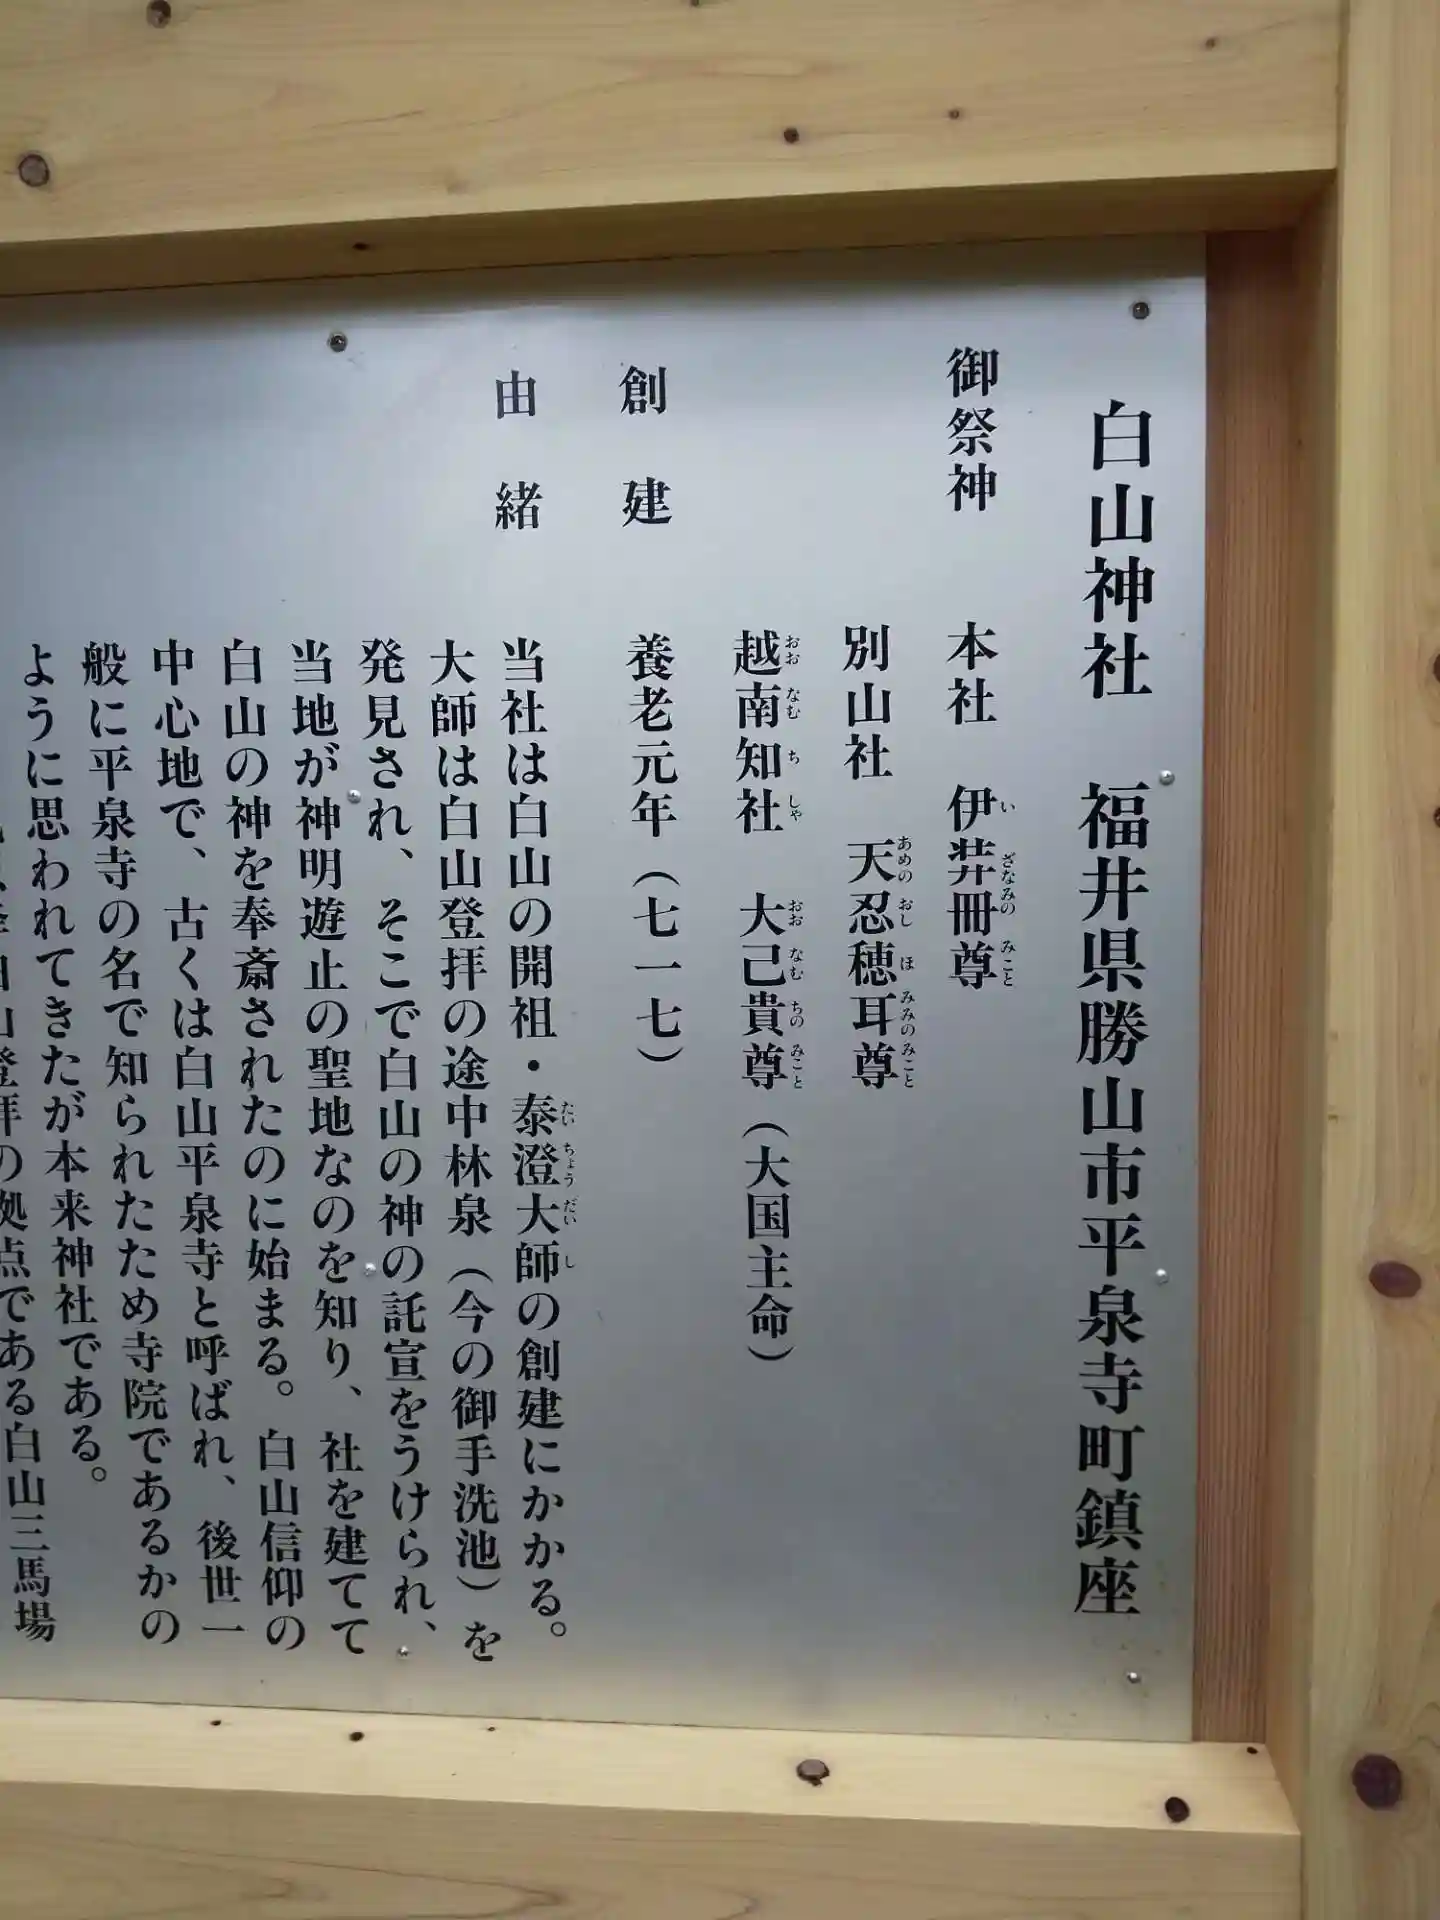 白山神社　福井県勝山市平泉寺町鎮座
御祭神　本社　伊弉冊尊
いざなみのみこと
別山社　天忍穂耳尊
あめのおしほみみのみこと
越南知社　大己貴尊（大国主命）
おおなむちしゃ　おおなむちのみこと
創建　養老元年（七一七）
由緒　当社は白山の開祖・泰澄大師の創建にかかる。
たいちょうだいし
大師は白山登拝の途中林泉（今の御手洗池）を
発見され、そこで白山の神の託宣をうけられ、
当地が神明遊止の聖地なのを知り、社を建てて
白山の神を奉斎されたのに始まる。白山信仰の
中心地で、古くは白山平泉寺と呼ばれ、後世一
般に平泉寺の名で知られたため寺院であるかの
ように思われてきたが本来神社である。
白山登拝の拠点である白山三馬場